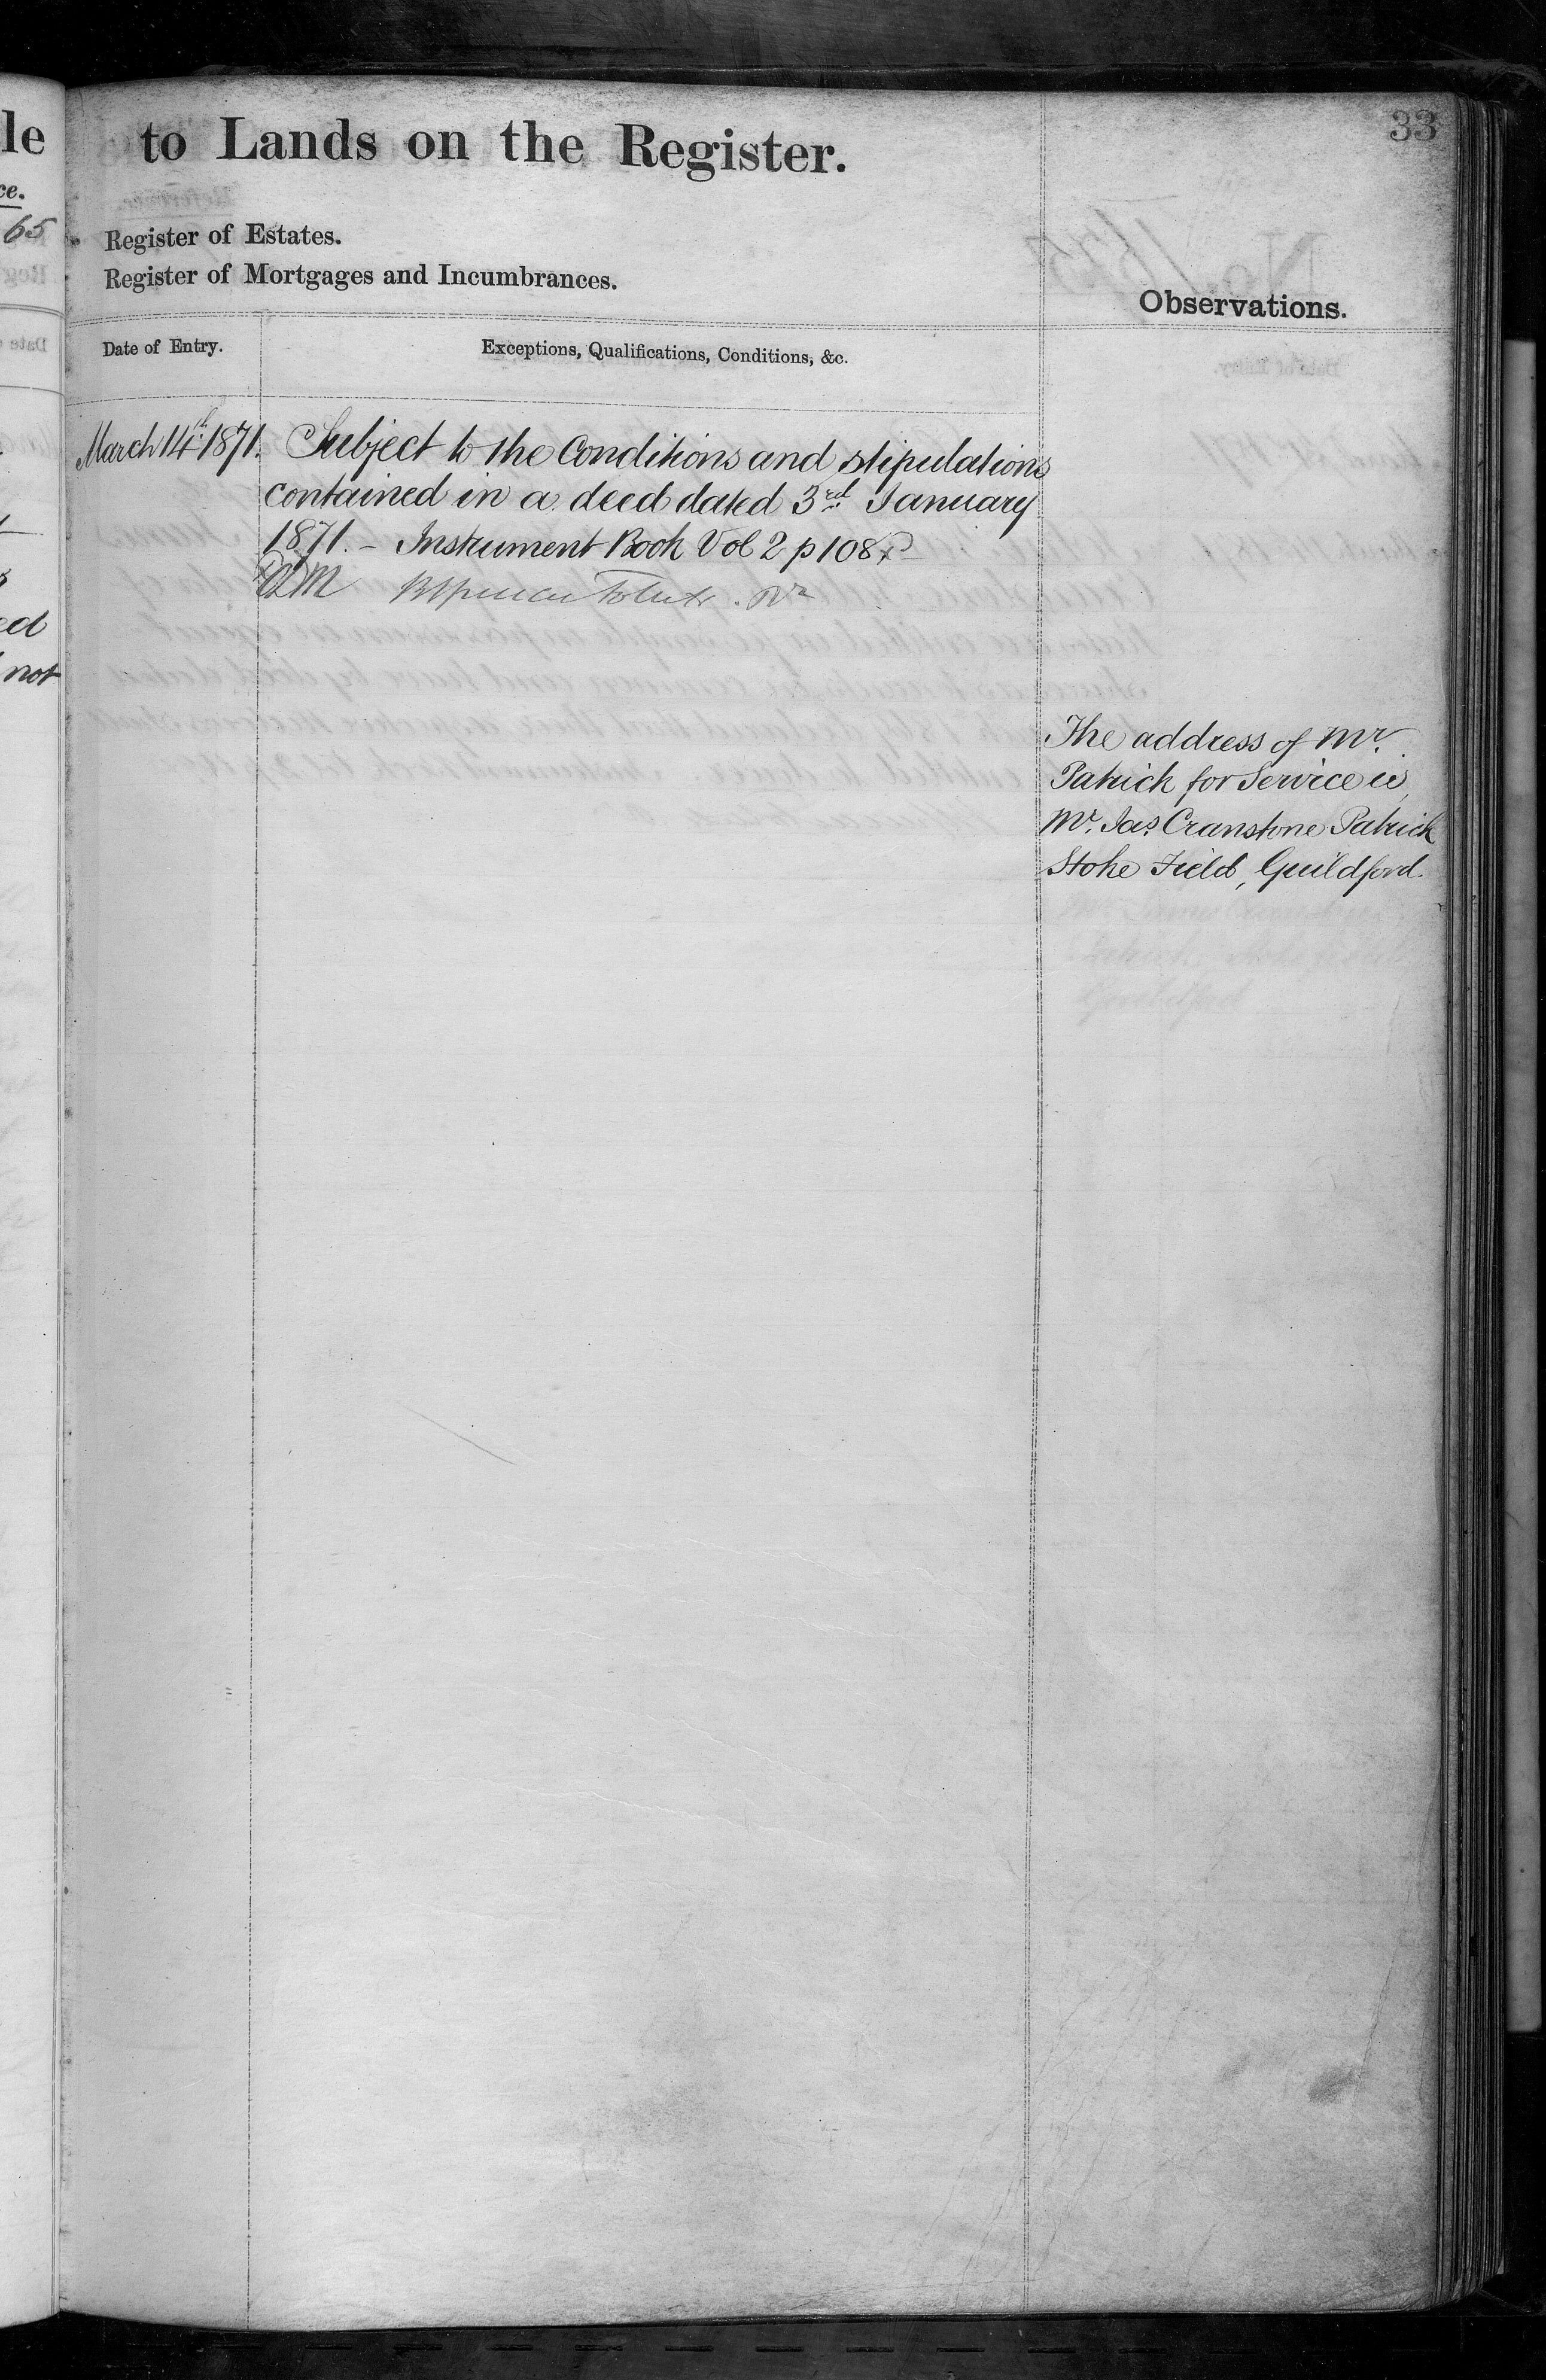 le
ce.
65
ed
not
33
to Lands on the Register.
Register of Estates.
Register of Mortgages and Incumbrances.
Observations.
Date of Entry.
Exceptions, Qualifications, Conditions, &c.
March 14th 1871. Subject to the Conditions and stipulations
contained in a deed dated 3rd January
1871. – Instrument Book Vol 2 p 108
The address of Mr.
Patrick for Service is,
Mr. Jas. Cranstone Patrick
Stoke Field, Guildford.